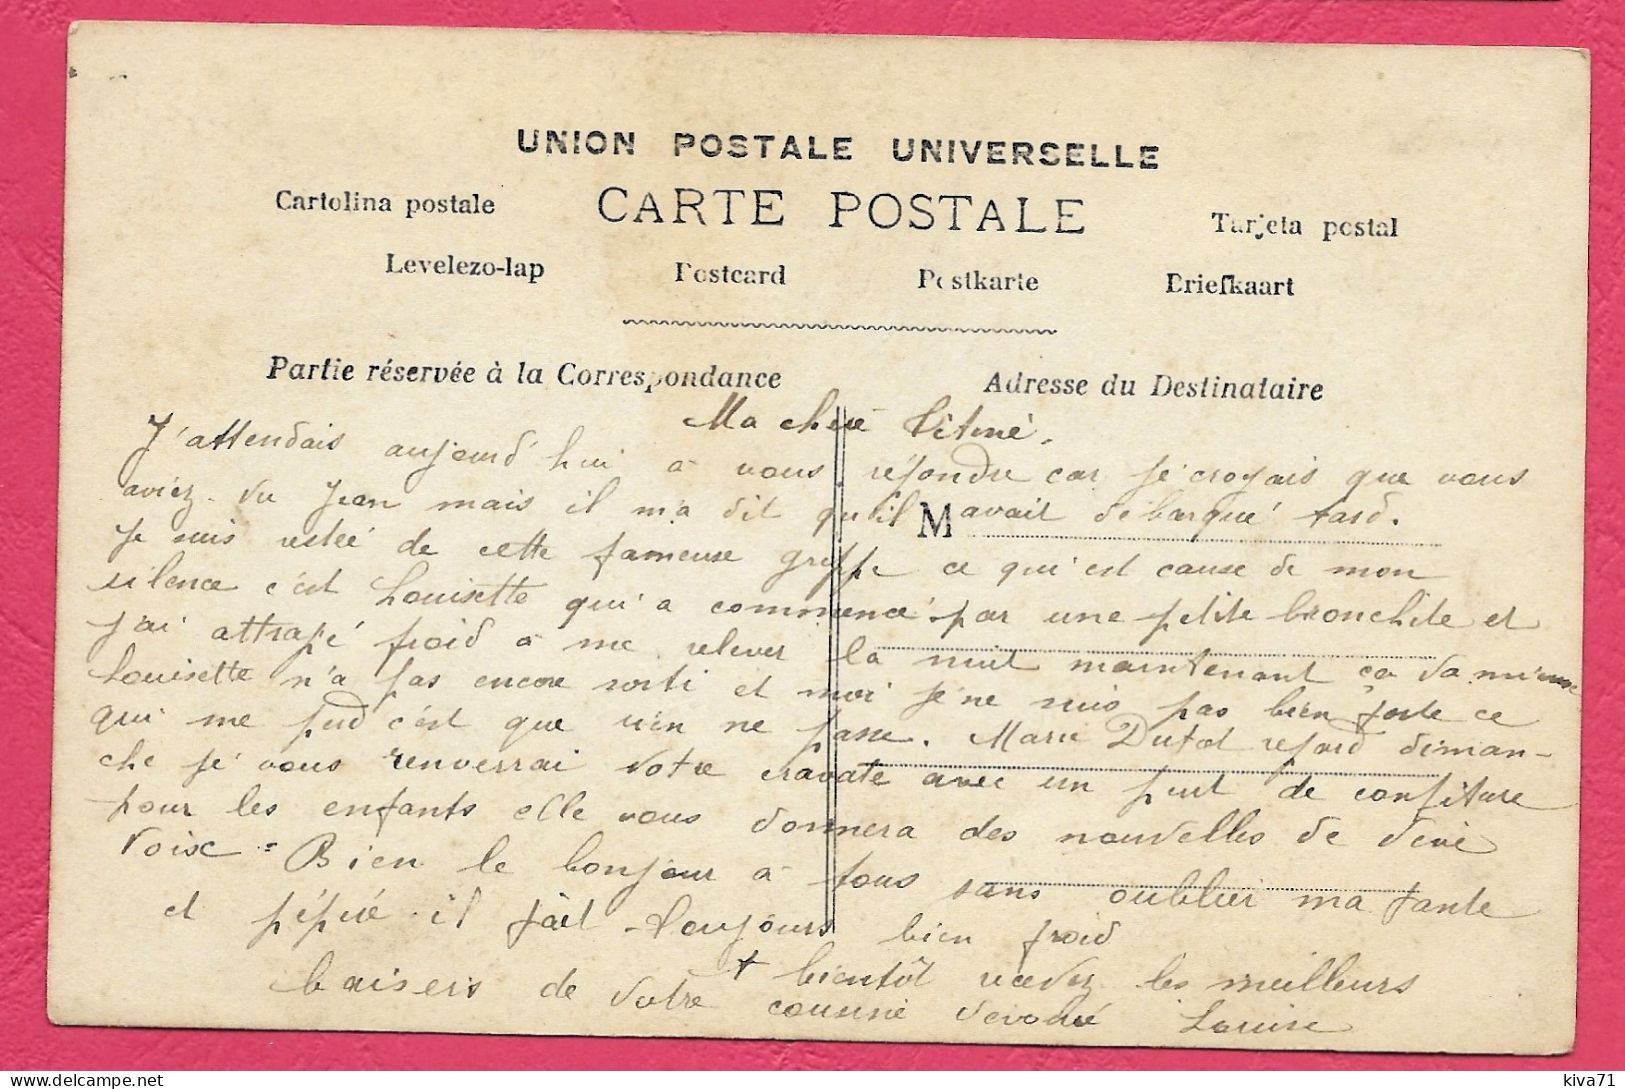 UNION POSTALE UNIVERSELLE
Cartolina postale CARTE POSTALE Tarjeta postal
Levelezo-lap Postcard Postkarte Briefkaart
Partie réservée à la Correspondance Adresse du Destinataire
Ma chère
J'attendais aujourd'hui à vous répondre car je croyais que vous
aviez vu Jean mais il m'a dit qu'il avait débarqué tard.
M
Je suis restée de cette fameuse grippe ce qui est cause de mon
silence c'est Louisette qui a commencé par une petite bronchite et
j'ai attrapé froid à me relever la nuit maintenant ça va mieux
Louisette n'a pas encore sorti et moi je ne suis pas bien forte ce
qui me c'est que rien ne passe. Marie repard diman-
che je vous renverrai votre cravate avec un de confiture
pour les enfants elle vous donnera des nouvelles de vive
voix = Bien le bonjour à tous sans oublier ma tante
et pépère il fait toujours bien froid
+ bientôt recevez les meilleurs
baisers de votre cousine dévoué Louise
kiva71